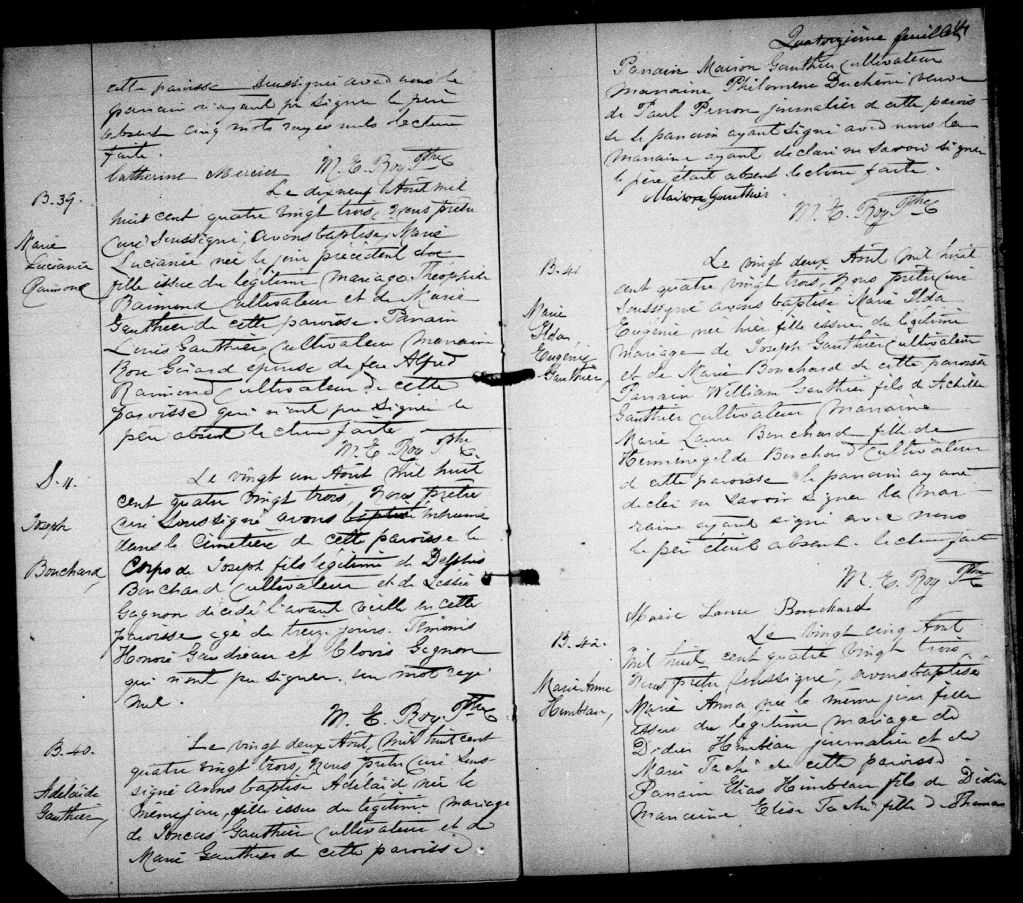 cette paroisse soussignée avec nous le
parrain n'ayant pu signer le père
absent cinq mots rayés nuls lecture
faite.
Catherine Mercier M. E. Roy Ptre
B. 39.
Marie
Lucianie
Raimond
Le dix neuf Août mil
huit cent quatre vingt trois, Nous prêtre
curé soussigné, avons baptisé, Marie
Lucianie née le jour précédent
fille issue du légitime mariage Théophile
Raimond cultivateur et de Marie
Gauthier de cette paroisse Parrain
Louis Gauthier, cultivateur Marraine
Girard épouse de feu Alfred
Raimond cultivateur de cette
paroisse qui n'ont pu signer le
père absent lecture faite
M. E. Roy Ptre
S. 11.
Joseph
Bouchard,
Le vingt un Août mil huit
cent quatre vingt trois, Nous prêtre
curé soussigné avons baptisé inhumé
dans le Cimetière de cette paroisse le
corps de Joseph fils légitime de Delphis
Bouchard cultivateur et de
Gagnon décédé l'avant veille en cette
paroisse agé de treize jours. Témoins
Honoré Gaudreau et Clovis Gagnon
qui n'ont pu signer. un mot rayé
nul.
M. E. Roy Ptre
B. 40.
Adélaide
Gauthier,
Le vingt deux Août, mil huit cent
quatre vingt trois, nous prêtre curé sous-
signé avons baptisé Adélaid née le
même jour, fille issue du légitime mariage
de Gauthier cultivateur et de
Marie Gauthier de cette paroisse
Quatorzième feuillet
Parrain Maison Gauthier cultivateur
marraine Philomène Duchêne veuve
de Paul Pinon journalier de cette parois-
se le parrain ayant signé avec nous la
Marraine ayant déclaré ne savoir signer
le père était absent lecture faite.
Maison Gauthier.
M. E. Roy Ptre
B. 41
Marie
Ilda
Eugénie
Gauthier,
Le vingt deux Août mil huit
cent quatre vingt trois, Nous prêtre curé
soussigné avons baptisé Marie Ilda
Eugénie née hier fille issue du légitime
mariage de Joseph Gauthier cultivateur
et de Marie Bouchard de cette paroisse
Parrain William Gauthier fils de Achille
Gauthier cultivateur Marraine
Marie Laure Bouchard fille de
Herménégilde Bouchard cultivateur
de cette paroisse le parrain ayant
déclaré ne savoir signer la mar-
raine ayant signé avec nous
le père était absent. lecture faite
M. E. Roy Ptre
Marie Laure Bouchard
B. 42.
Marie Anna
Himbeau,
Le vingt cinq Août
mil huit cent quatre vingt trois,
Nous prêtre soussigné, avons baptisé
Marie Anna née le même jour fille
issue du légitime mariage de
Didier Himbeau journalier et de
Marie Taché de cette paroisse
Parrain Elias Himbeau fils de Didier
Marraine Elise Taché fille de Thomas